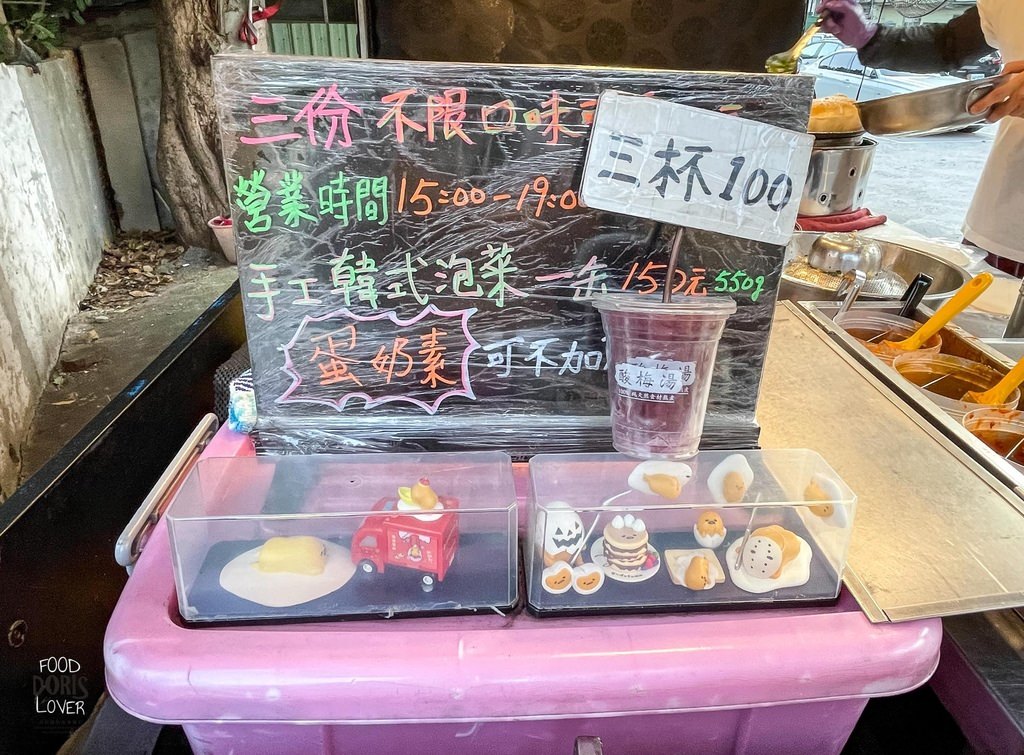 三份 不限口味
三杯100
營業時間 15:00-19:0
手工韓式泡菜 一缶 150元 550g
蛋奶素 可不加
酸梅湯
FOOD
DORIS
LOVER